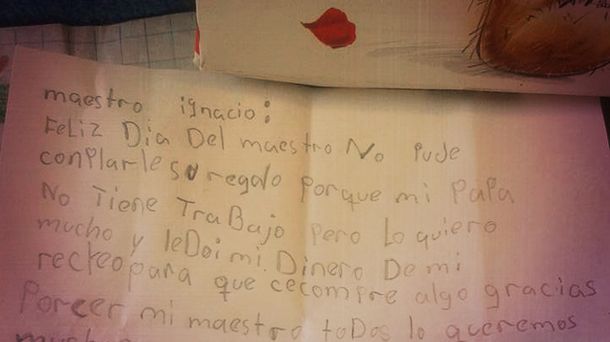 maestro ignacio:
FeLiz Dia Del maestro No Pude
conPlarle su regalo Porque mi PaPa
No Tiene TraBaJo Pero Lo quiero
mucho y leDoi mi Dinero De mi
recreo para que cecompre algo gracias
Porcer mi maestro toDos lo queremos